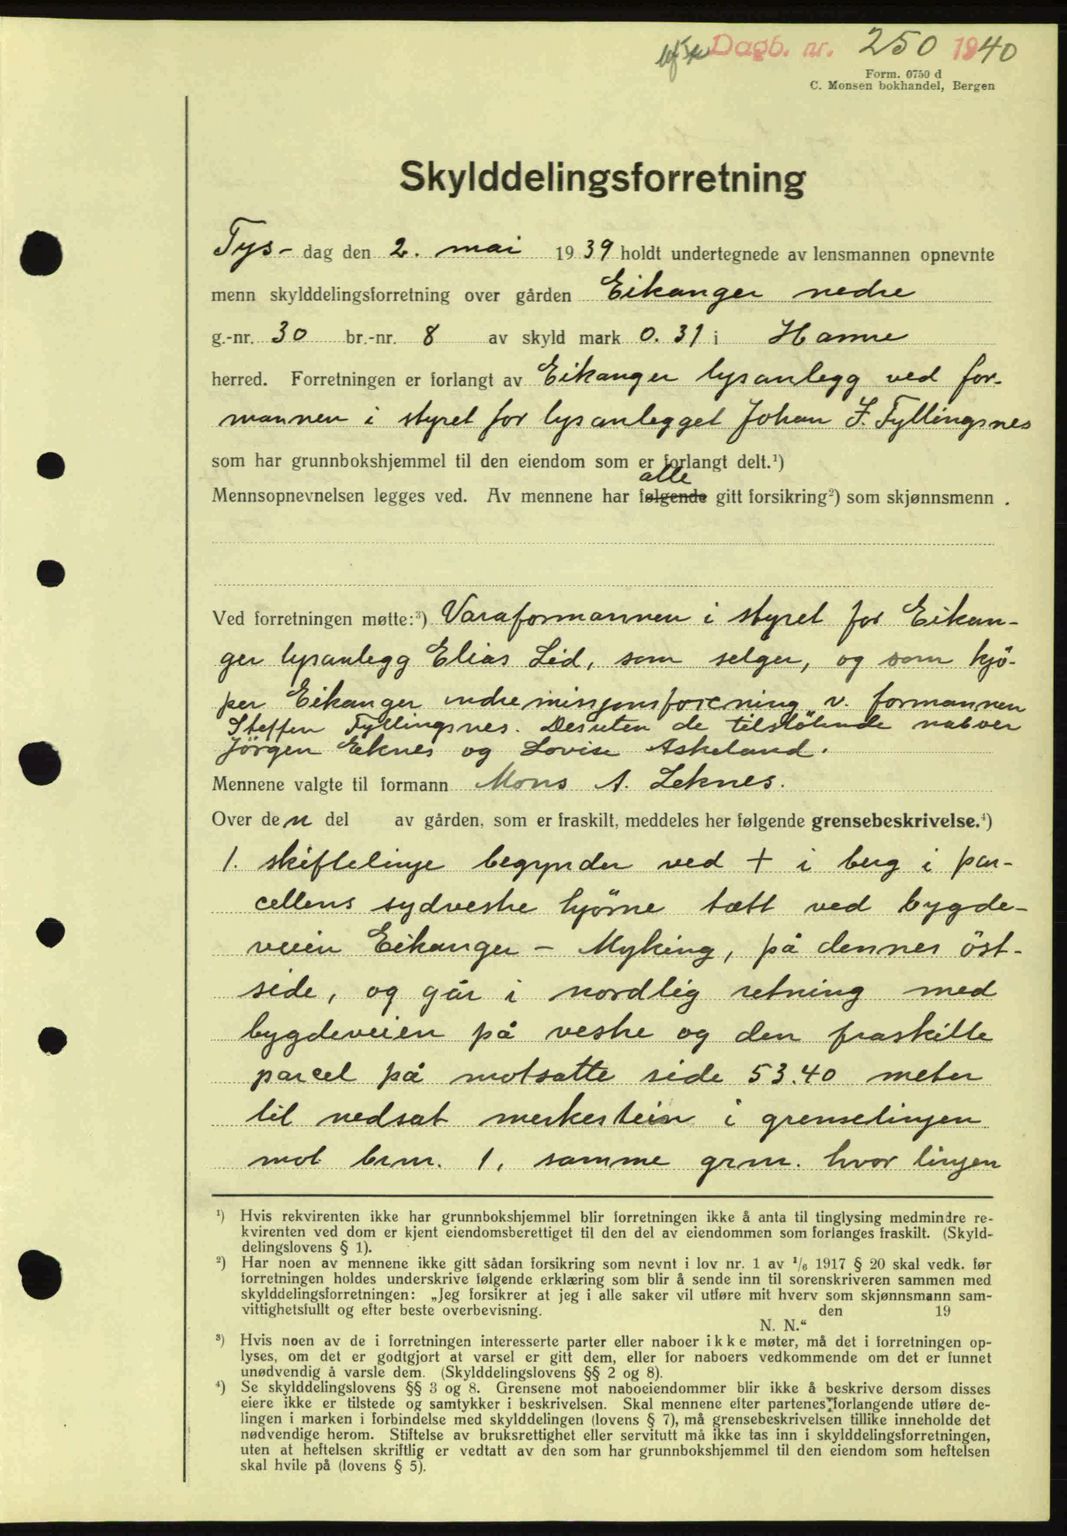 Dagb. nr. 250 1940
Form. 0750 d
C. Monsen bokhandel, Bergen
Skylddelingsforretning
Tys- dag den 2. mai 1939 holdt undertegnede av lensmannen opnevnte
menn skylddelingsforretning over gården Eikanger nedre
g.-nr. 30 br.-nr. 8 av skyld mark 0.31 i Hamre
herred. Forretningen er forlangt av Eikanger lysanlegg ved for-
mannen i styret for lysanlegget Johan I. Fyllingsnes
som har grunnbokshjemmel til den eiendom som er forlangt delt.¹)
alle
Mennsopnevnelsen legges ved. Av mennene har følgende gitt forsikring²) som skjønnsmenn .
Ved forretningen møtte:³) Varaformannen i styret for Eikan-
ger lysanlegg Elias Lid, som selger, og som kjö-
per Eikanger indremisjonsforening v. formannen
Steffen Fyllingsnes. Desuten de tilstötende naboer
Jörgen Eknes og Lovise Askeland.
Mennene valgte til formann Mons A. Leknes.
Over den del av gården, som er fraskilt, meddeles her følgende grensebeskrivelse.⁴)
1. skiftelinje begynder ved + i berg i par-
cellens sydvestre hjörne tætt ved bygde-
veien Eikanger - Myking, på dennes öst-
side, og går i nordlig retning med
bygdeveien på vestre og den fraskilte
parcel på motsatte side 53.40 meter
til nedsat merkestein i grenselinjen
mot brm. 1, samme grm. hvor linjen
¹) Hvis rekvirenten ikke har grunnbokshjemmel blir forretningen ikke å anta til tinglysing medmindre re-
kvirenten ved dom er kjent eiendomsberettiget til den del av eiendommen som forlanges fraskilt. (Skyld-
delingslovens § 1).
²) Har noen av mennene ikke gitt sådan forsikring som nevnt i lov nr. 1 av ¹/₆ 1917 § 20 skal vedk. før
forretningen holdes underskrive følgende erklæring som blir å sende inn til sorenskriveren sammen med
skylddelingsforretningen: „Jeg forsikrer at jeg i alle saker vil utføre mit hverv som skjønnsmann sam-
vittighetsfullt og efter beste overbevisning. den 19
N. N.“
³) Hvis noen av de i forretningen interesserte parter eller naboer ikke møter, må det i forretningen op-
lyses, om det er godtgjort at varsel er gitt dem, eller for naboers vedkommende om det er funnet
unødvendig å varsle dem. (Skylddelingslovens §§ 2 og 8).
⁴) Se skylddelingslovens §§ 3 og 8. Grensene mot naboeiendommer blir ikke å beskrive dersom disses
eiere ikke er tilstede og samtykker i beskrivelsen. Skal mennene efter partenes forlangende utføre de-
lingen i marken i forbindelse med skylddelingen (lovens § 7), må grensebeskrivelsen tillike inneholde det
nødvendige herom. Stiftelse av bruksrettighet eller servitutt må ikke tas inn i skylddelingsforretningen,
uten at heftelsen skriftlig er vedtatt av den som har grunnbokshjemmel til den eiendom som heftelsen
skal hvile på (lovens § 5).